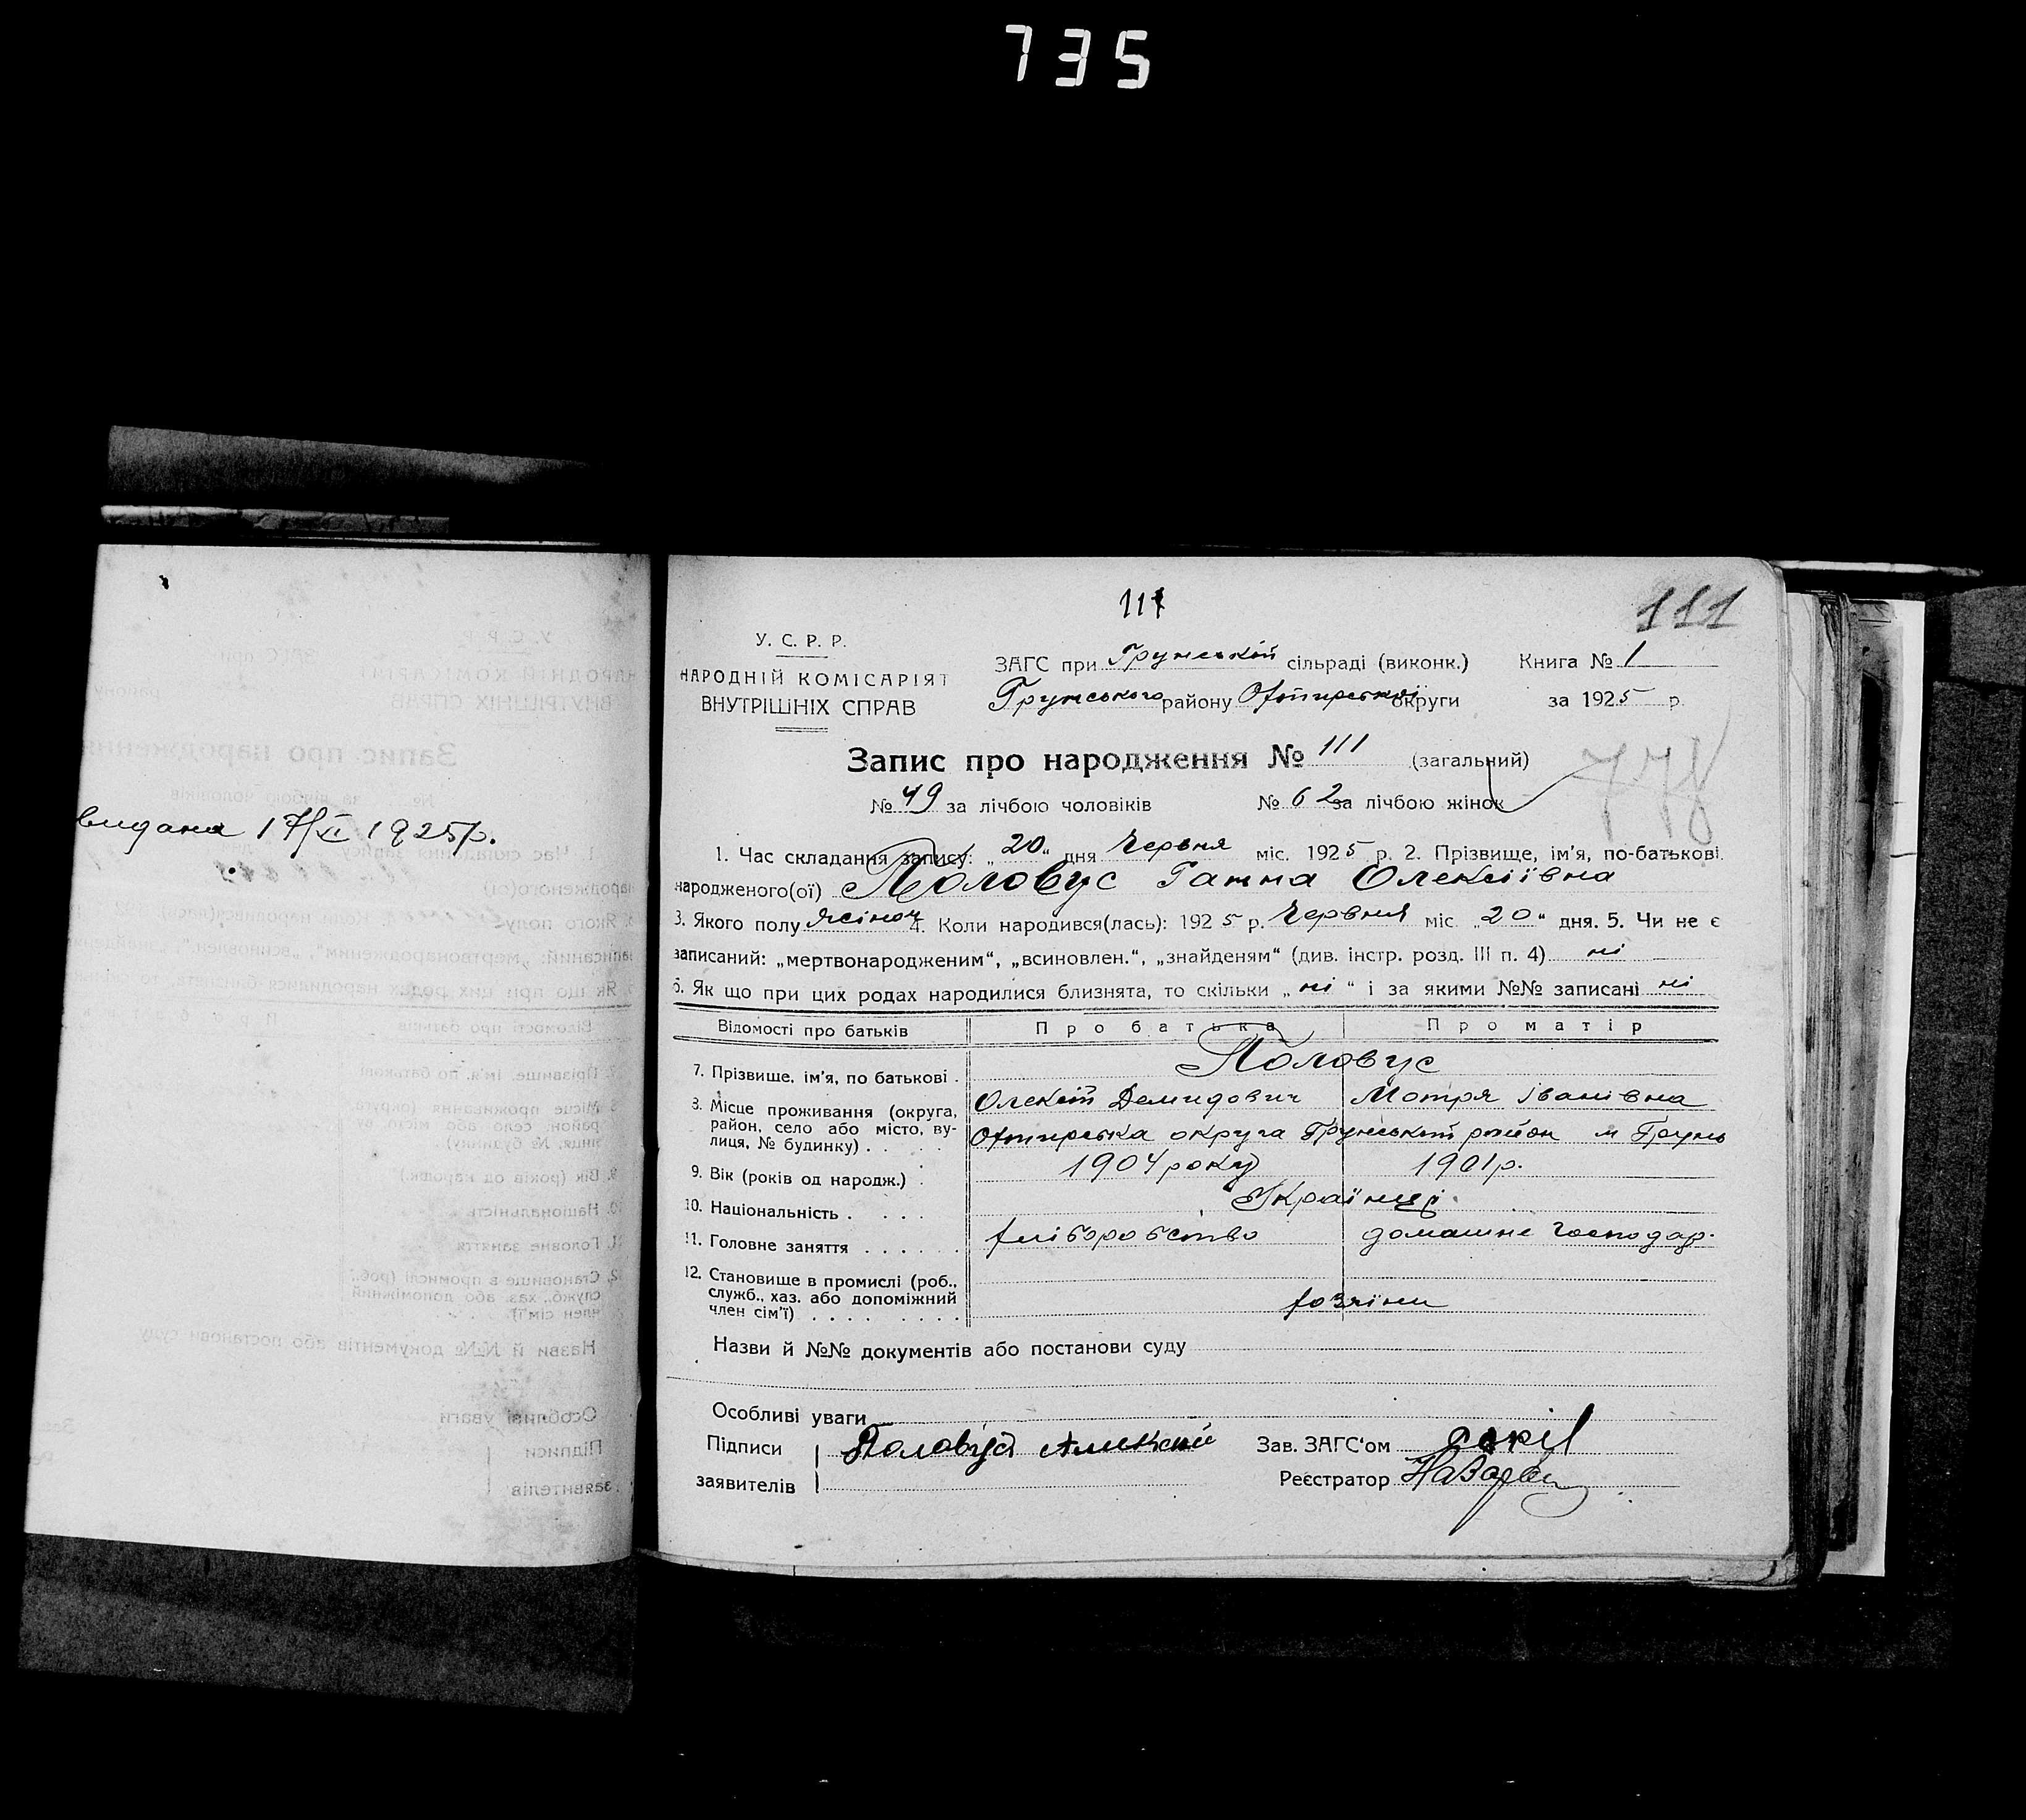 735
видана 17/XI 1925р.
111
111
У. С. Р. Р.
НАРОДНІЙ КОМІСАРІЯТ
ВНУТРІШНІХ СПРАВ
ЗАГС при Грунській сільраді (виконк.) Книга № 1
Грунського району Охтирської округи за 1925 р.
Запис про народження № 111 (загальний)
№ 49 за лічбою чоловіків № 62 за лічбою жінок
1. Час складання запису: „20“ дня Червня міс. 1925 р. 2. Прізвище, ім’я, по-батькові
народженого(ої) Половус Ганна Олексіївна
3. Якого полу жіноч 4. Коли народився(лась): 1925 р. Червня міс. „20“ дня. 5. Чи не є
записаний: „мертвонародженим“, „всиновлен.“, „знайденям“ (див. інстр. розд. III п. 4) ні
6. Як що при цих родах народилися близнята, то скільки „ні“ і за якими №№ записані ні
Відомості про батьків Про батька Про матір
Половус
7. Прізвище, ім’я, по батькові . Олексій Демидович Мотря Іванівна
8. Місце проживання (округа, район, село або місто, вулиця, № будинку) . . . . Охтирська округа Грунський район м Грунь
9. Вік (років од народж.) . 1904 року 1901 р.
10. Національність . . . . Українці
11. Головне заняття . . . . . . хліборобство домашнє господар.
12. Становище в промислі (роб.,
служб., хаз. або допоміжний
член сім’ї) . . . . . . . . хозяїни
Назви й №№ документів або постанови суду
Особливі уваги
Підписи Половус Алексій Зав. ЗАГС‘ом
заявителів Реєстратор